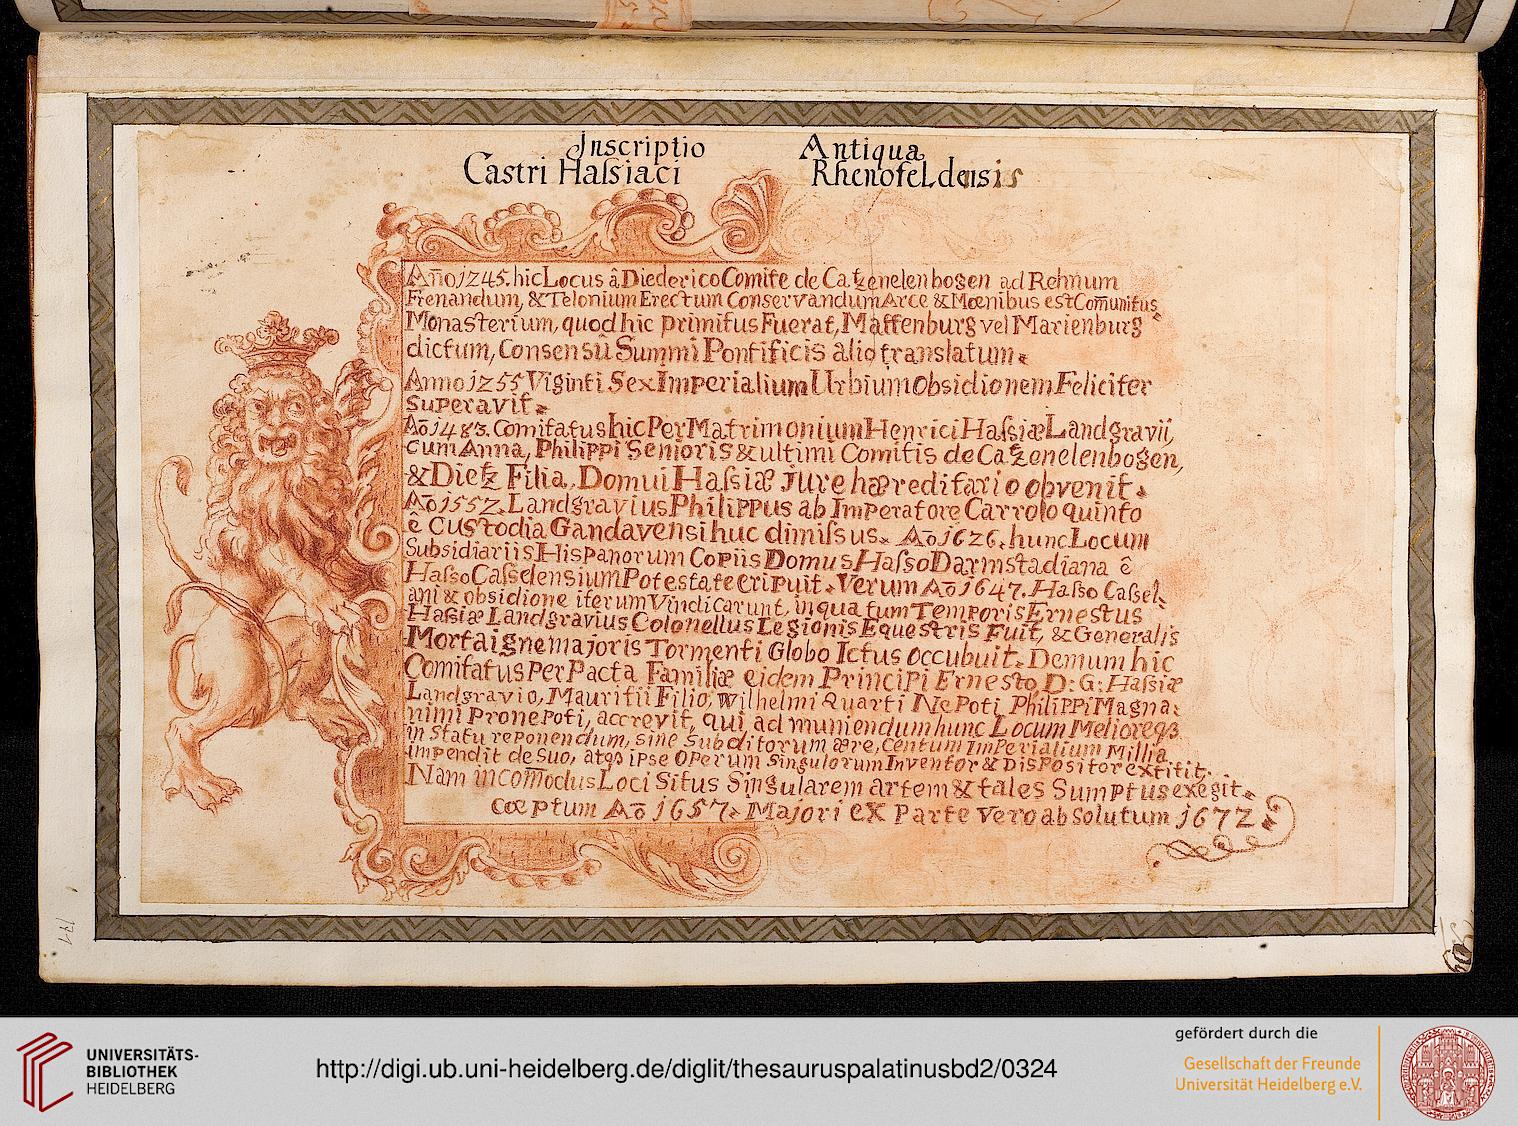 Inscriptio Antiqua
Castri Haſsiaci Rhenofeldensis
Año 1245. hic Locus â Diederico Comite de Catzenelenbogen ad Rehnum
Frenandum, & Telonium Erectum Conservandum Arce & Mœnibus est Com̃unitus,
Monasterium, quod hic primitus Fuerat, Mattenburg vel Marienburg
dictum, Consensũ Summi Pontificis alio translatum.
Anno 1255 Viginti Sex Imperialium Urbium Obsidionem Feliciter
Superavit.
Aō 1483. Comitatus hic Per Matrimonium Henrici Haſsiæ Landgravii,
cum Anna, Philippi Senioris & ultimi Comitis de Catzenelenbogen,
& Dietz Filia, Domui Haſsiæ jure hæreditario obvenit.
Aō 1552. Landgravius Philippus ab Imperatore Carrolo quinto
ê Custodia Gandavensi huc dimiſsus. Aō 1626. hunc Locum
Subsidiariis Hispanorum Copiis Domus Haſso Darmstadiana ê
Haſso Caſselensium Potestate eripuit. Verum Aō 1647. Haſso Caſsel-
ani & obsidione iterum Vindicarunt, in qua tum Temporis Ernestus
Haſsiæ Landgravius Colonellus Legionis Equestris Fuit, & Generalis
Mortaigne majoris Tormenti Globo Ictus occubuit. Demum hic
Comitatus Per Pacta Familiæ eidem Principi Ernesto D: G: Haſsiæ
Landgravio, Mauritii Filio, Wilhelmi Quarti Nepoti Philippi Magna-
nimi Pronepoti, accrevit, qui ad muniendum hunc Locum Melioreqz
in Statu reponendum, sine Subditorum ære, Centum Imperialium Millia
impendit de Suo, atqz ipse Operum Singulorum Inventor & Dispositor extitit.
Nam incom̃odus Loci Situs Singularem artem & tales Sumptus exegit.
cœptum Aō 1657. Majori ex Parte vero absolutum 1672.
171
UNIVERSITÄTS-
BIBLIOTHEK
HEIDELBERG
http://digi.ub.uni-heidelberg.de/diglit/thesauruspalatinusbd2/0324
gefördert durch die
Gesellschaft der Freunde
Universität Heidelberg e.V.